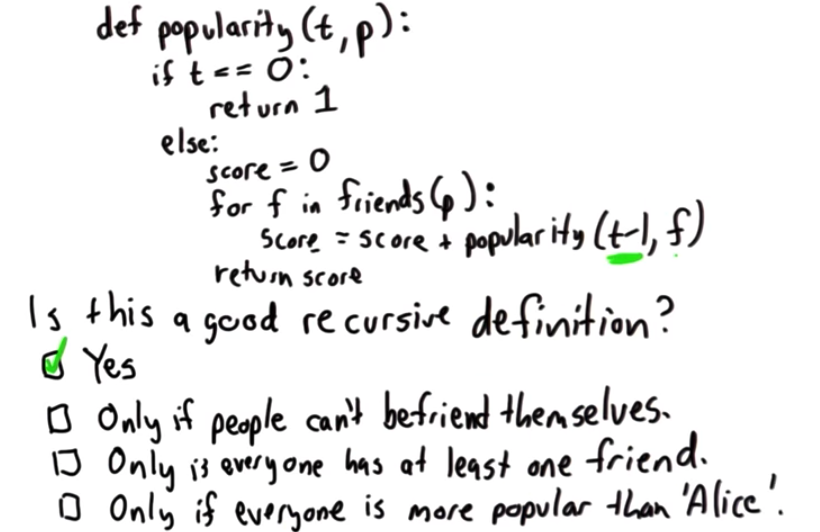 def popularity(t,p):
if t == 0:
return 1
else:
score = 0
for f in friends(p):
score = score + popularity(t-1, f)
return score
Is this a good recursive definition?
Yes
Only if people can't befriend themselves.
Only if everyone has at least one friend.
Only if everyone is more popular than 'Alice'.